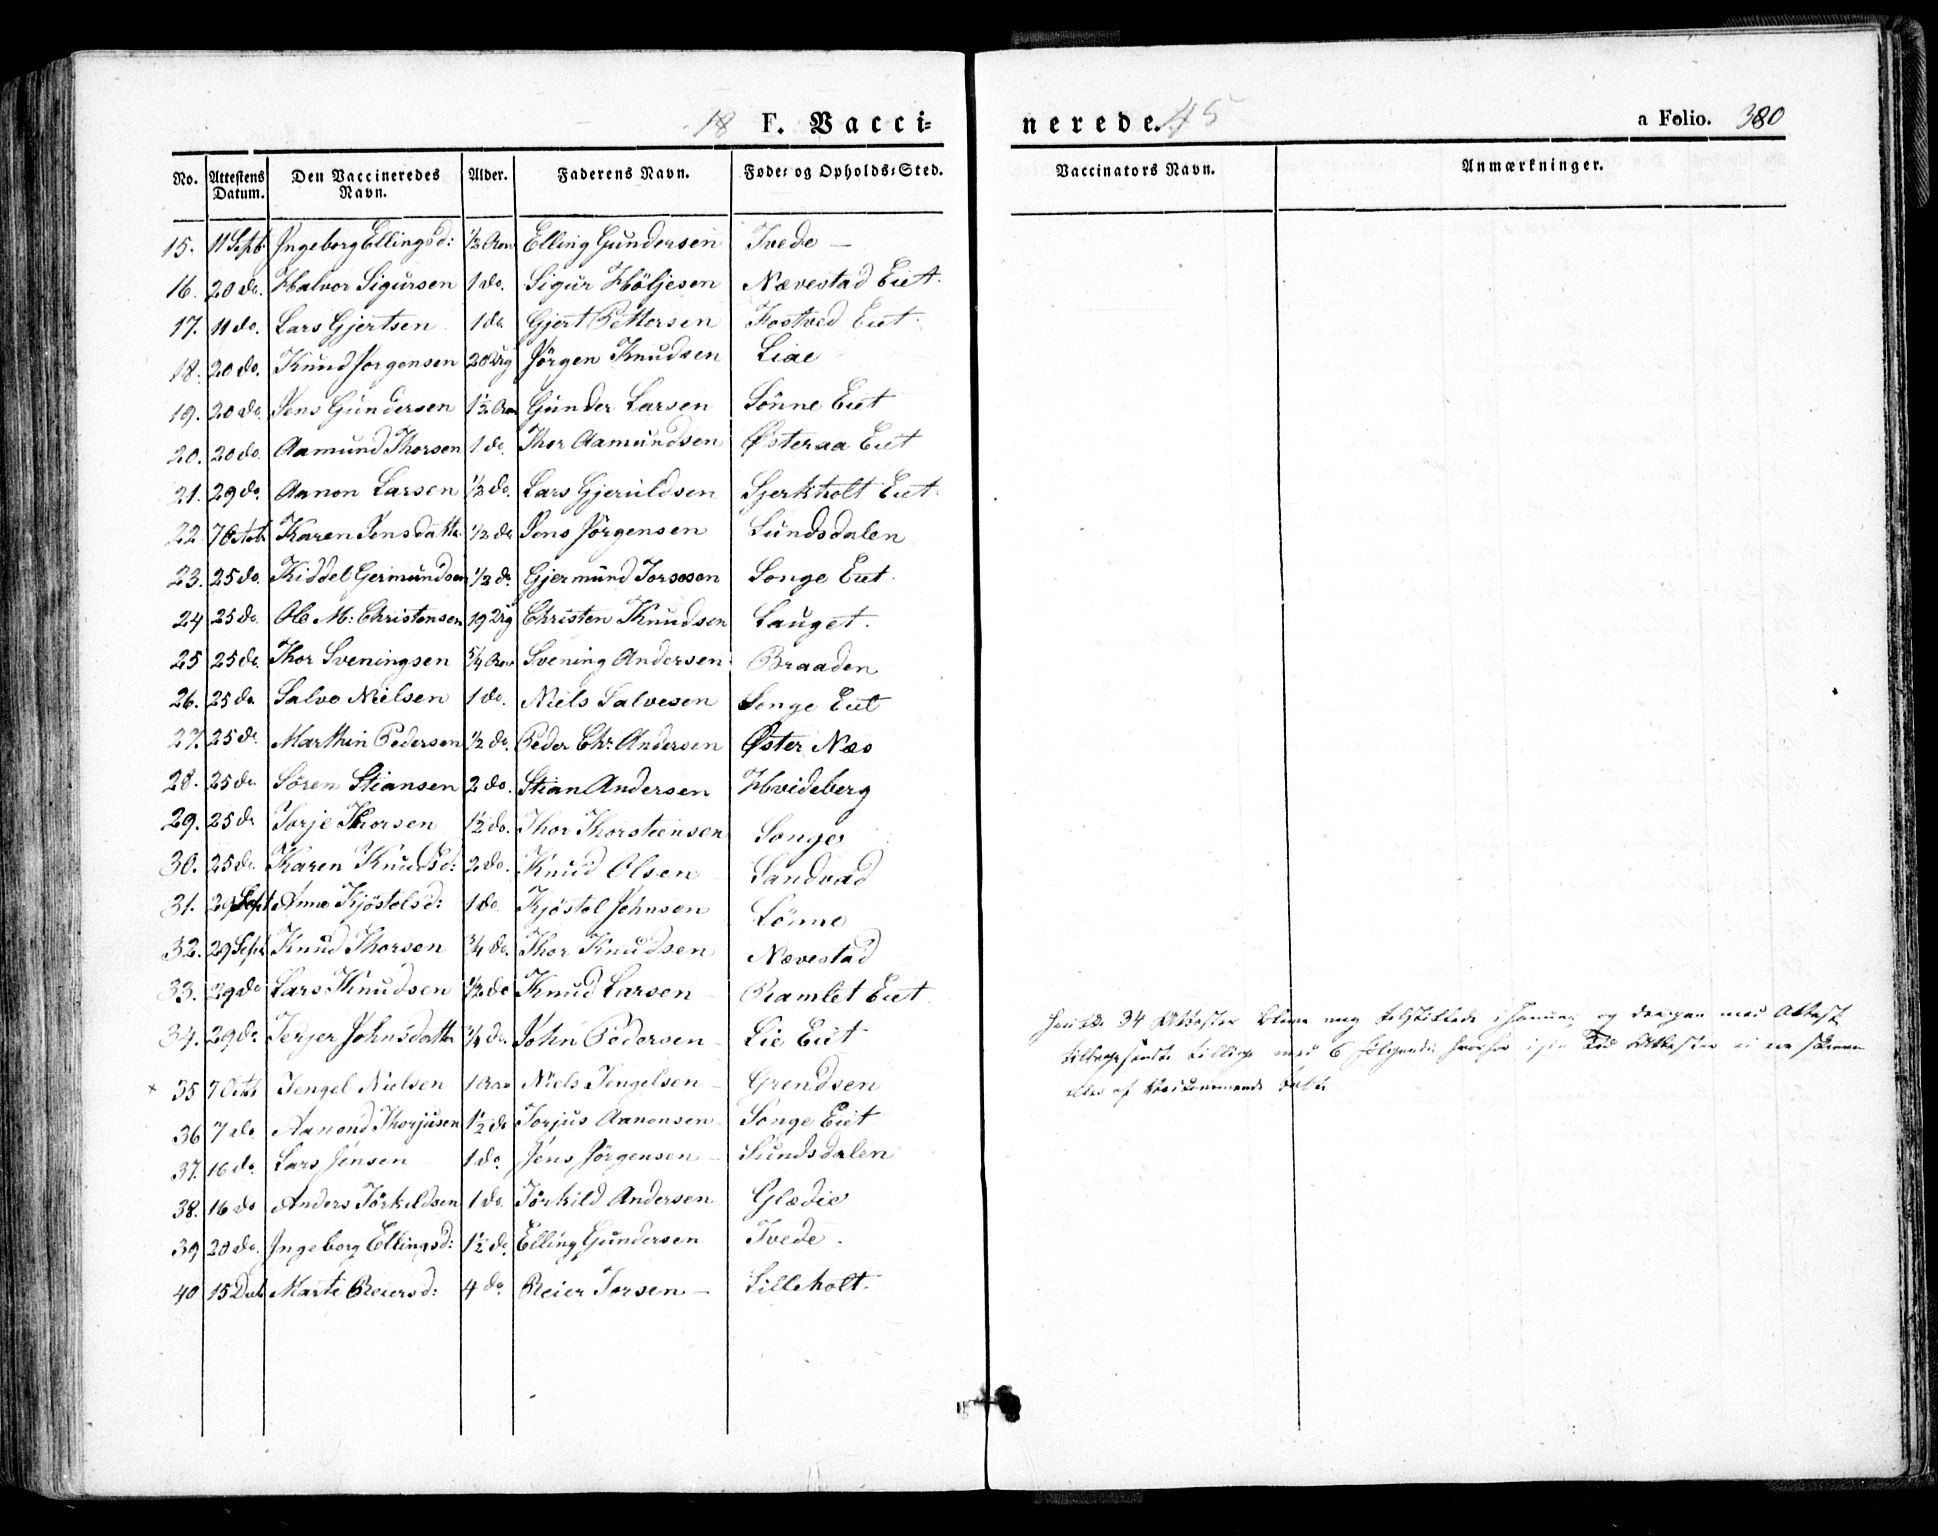 18 F. Vacci=
nerede. 45
a Folio. 380
No. Attestens Datum. Den Vaccineredes Navn. Alder. Faderens Navn. Føde= og Opholds=Sted. Vaccinators Navn. Anmærkninger.
15. 11 Sept Ingeborg Ellingsd: 1/2 Aar Elling Gundersen Tvede —
16. 20 do. Halvor Sigursen 1 do. Sigur Høljesen Nævestad Eiet.
17. 11 do. Lars Gjertsen 1 do Gjert Pettersen Fostved Eiet.
18. 20 do. Knud Jorgensen 20 Uig Jörgen Knudsen Liae
19. 20 do. Jens Gundersen 1 1/2 Aar Gunder Larsen Lönne Eiet
20. 20 do. Aamund Thorsen 1 do Thor Aamundsen Østeraa Eiet
21. 29 do. Aanon Larsen 1/2 do. Lars Gjeruldsen Sjerkholt Eiet.
22 7 Octob Karen Jensdattr 1/2 do Jens Jörgensen Lundsdalen
23. 25 do. Kiddel Germundsen 1/2 do. Gjermund Torsesen Songe Eiet.
24 25 do. Ole M: Christensen 19 Uig Christen Knudsen Lauget.
25 25 do. Thor Sveningsen 5/4 Aar Svening Andersen Braaden
26. 25 do Salve Nielsen 1 do. Niels Salvesen Songe Eiet
27. 25 do Marthin Pedersen 1/2 do. Peder Chr. Andersen Øster Næs
28. 25 do Sören Stiansen 2 do. Stian Andersen Hvideberg
29. 25 do Torje Thorsen 1 1/2 do. Thor Thorsteensen Songe
30. 25 do. Karen Knudsd: 2 do. Knud Olsen Sandvad
31. 29 Sept Anne Kjöstolsd: 1 do Kjöstol Johnsen Lönne
32. 29 Sept Knud Thorsen 3/4 do. Thor Knudsen Nævestad
33. 29 do Lars Knudsen 1/2 do Knud Larsen — Ramlet Eiet
34. 29 do Terjer Johnsdattr 3/4 do. John Pedersen — Lie Eiet
34 og 6
× 35 7 Octb Tengel Nielsen 1 Aar Niels Tengelsen — Grendsen
36 7 do Aanond Thorjusen 1 1/2 do Torjus Aanonsen Songe Eiet
37. 16 do. Lars Jensen 1 do. Jens Jörgensen — Lundsdalen
38. 16 do Anders Törkildsen 1 do. Törkild Andersen Glædie
39 20 do. Ingeborg Ellingsd: 1 1/2 do Elling Gundersen Tvede.
40 15 Dec Marte Reiersd: 4 do Reier Torsen — Lilleholt.